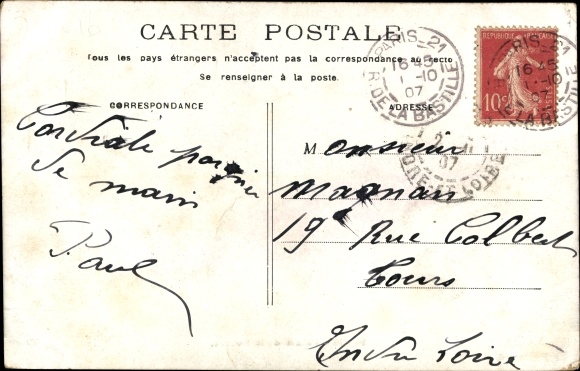 CARTE POSTALE
Tous les pays étrangers n'acceptent pas la correspondance au recto
Se renseigner à la poste.
CORRESPONDANCE
ADRESSE
Cordiale poignée
de main
Paul
Monsieur
Magnan
19 Rue Colbert
Tours
Indre Loire
PARIS_21
16 45
1 -10
07
R. DE LA BASTILLE
07
INDRE ET LOIRE
REPUBLIQUE
10c
16 45
-10
07
DE LA BASTILLE